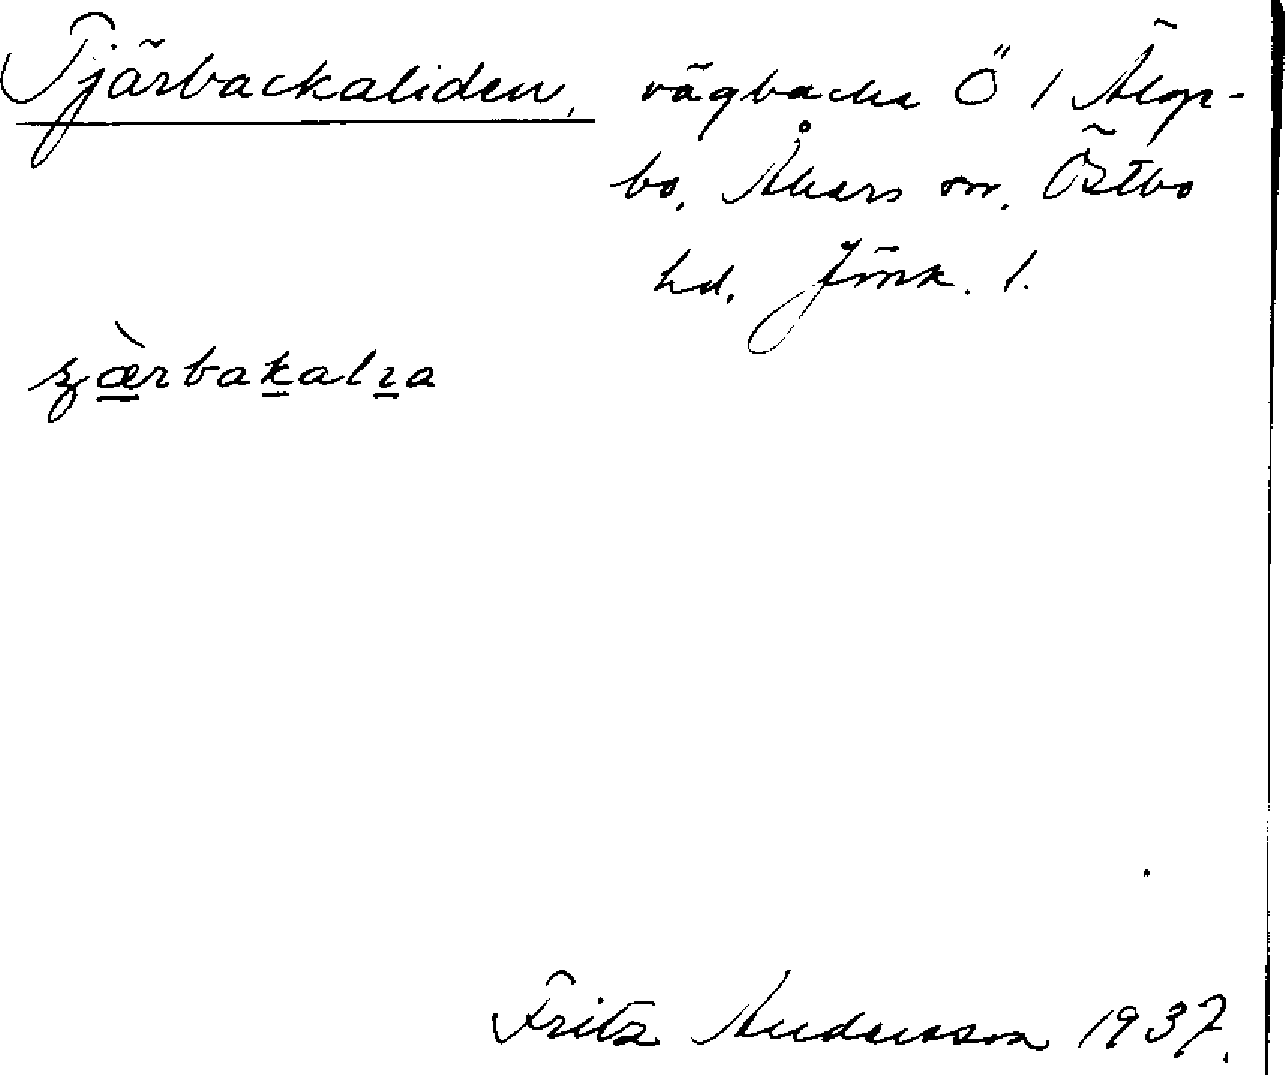 Tjärbackaliden, vägbacke Ö / Älgp-
bo, Åkers sn. Östbo
hd. Jönk. l.
bakal
Fritz Andersson 1937.